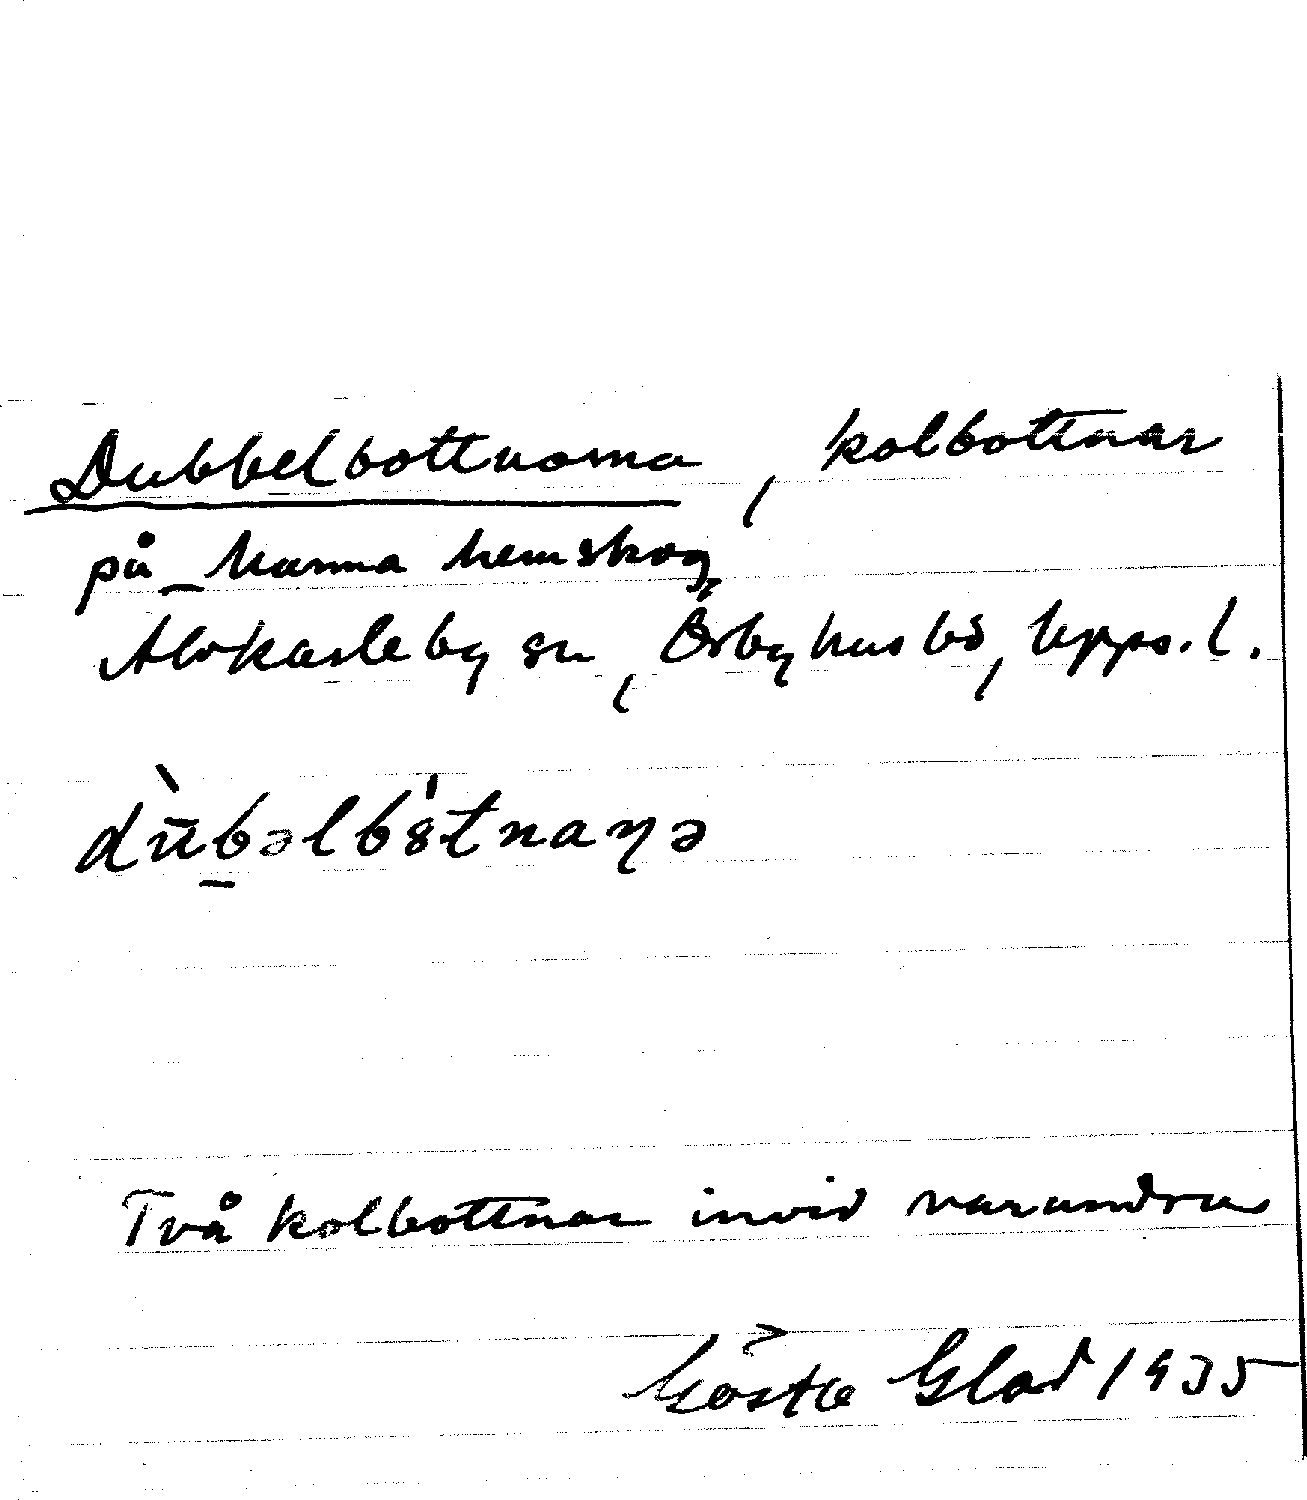 Dubbelbottnarna, kolbottnar
på Kanna hemskog,
Älvkarleby sn, Örbyhus hd, Upps. l.
dùbəlbåtnaɳə
Två kolbottnar invid varandra
Gösta Glad 1935